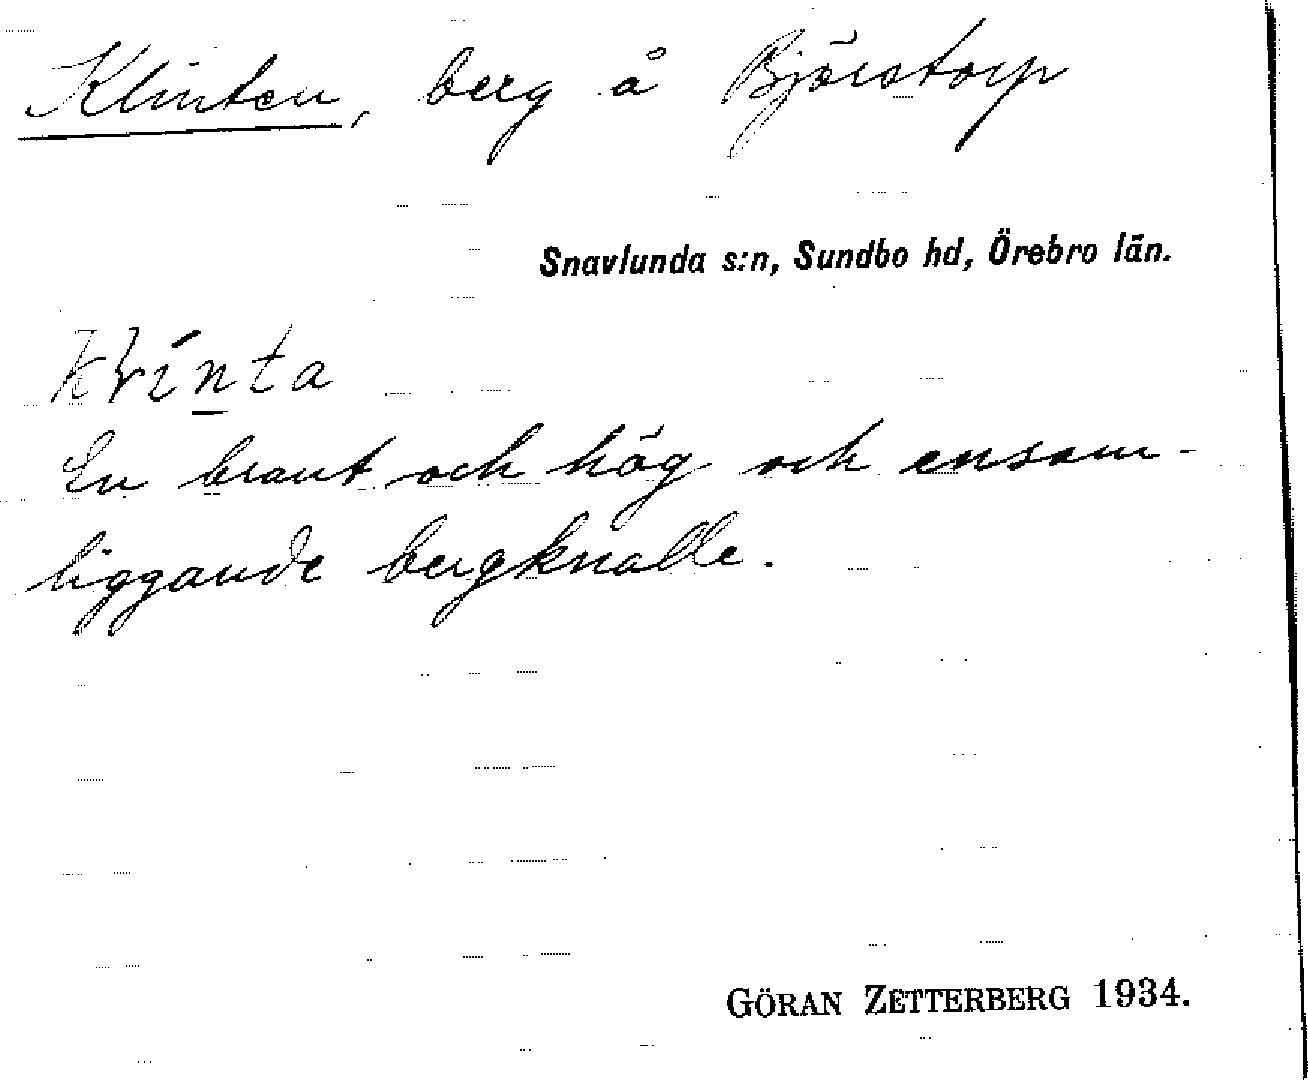 Klinten, berg å Björstorp
Snavlunda s:n, Sundbo hd, Örebro län.
En brant och hög och ensam-
liggande bergknalle.
GÖRAN ZETTERBERG 1934.